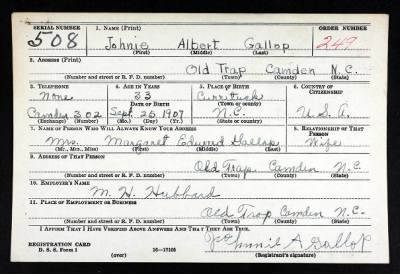 SERIAL NUMBER 1. NAME (Print) ORDER NUMBER
508 Johnie Albert Gallop 249
(First) (Middle) (Last)
2. ADDRESS (Print)
Old Trap Camden N.C.
(Number and street or R. F. D. number) (Town) (County) (State)
3. TELEPHONE 4. AGE IN YEARS 5. PLACE OF BIRTH 6. COUNTRY OF CITIZENSHIP
None 33 Currituck
DATE OF BIRTH (Town or county)
Camden 302 Sept. 26 1907 N.C. U.S.A.
(Exchange) (Number) (Mo.) (Day) (Yr.) (State or country)
7. NAME OF PERSON WHO WILL ALWAYS KNOW YOUR ADDRESS 8. RELATIONSHIP OF THAT PERSON
Mrs. Margaret Edward Gallop Wife
(Mr., Mrs., Miss) (First) (Middle) (Last)
9. ADDRESS OF THAT PERSON
Old Trap Camden N.C.
(Number and street or R. F. D. number) (Town) (County) (State)
10. EMPLOYER'S NAME
M. H. Hubbard
11. PLACE OF EMPLOYMENT OR BUSINESS
Old Trap Camden N.C.
(Number and street or R. F. D. number) (Town) (County) (State)
I AFFIRM THAT I HAVE VERIFIED ABOVE ANSWERS AND THAT THEY ARE TRUE.
REGISTRATION CARD
D. S. S. Form 1 16—17105 A Gallop
(over) (Registrant's signature)